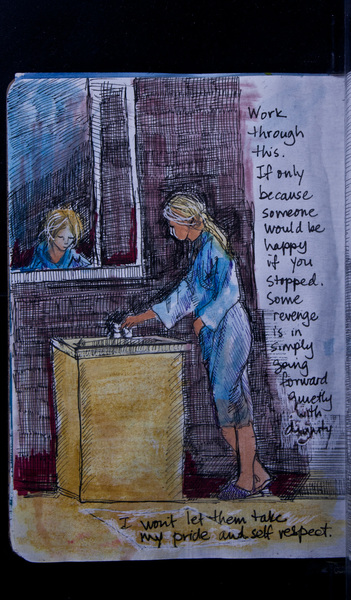 Work
through
this.
If only
because
someone
would be
happy
if you
stopped.
Some
revenge
is in
simply
going
forward
quietly
with
dignity
I wont let them take
my pride and self respect.